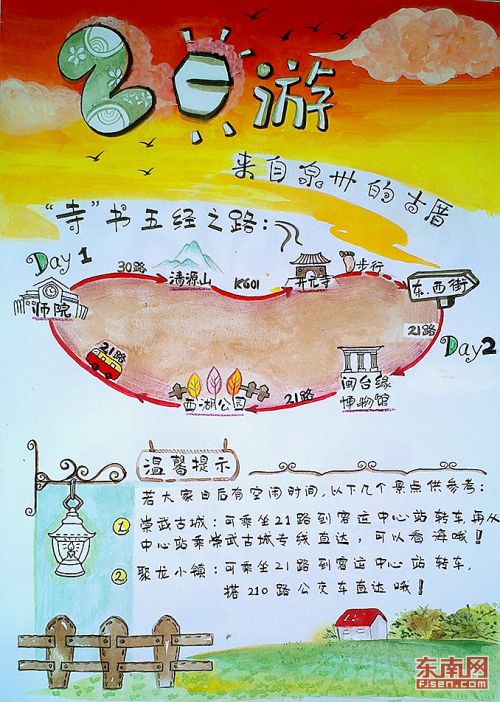 2日游
来自泉州的古厝
“寺”书五经之路:
Day 1
30路
清源山
K601
开元寺
步行
东.西街
师院
21路
Day2
闽台缘
博物馆
21路
西湖公园
21路
温馨提示
若大家日后有空闲时间,以下几个景点供参考:
1. 崇武古城:可乘坐21路到客运中心站转车,再从
中心站乘崇武古城专线直达,可以看海哦!
2. 聚龙小镇:可乘坐21路到客运中心站转车,
搭210路公交车直达哦!
东南网
fjsen.com